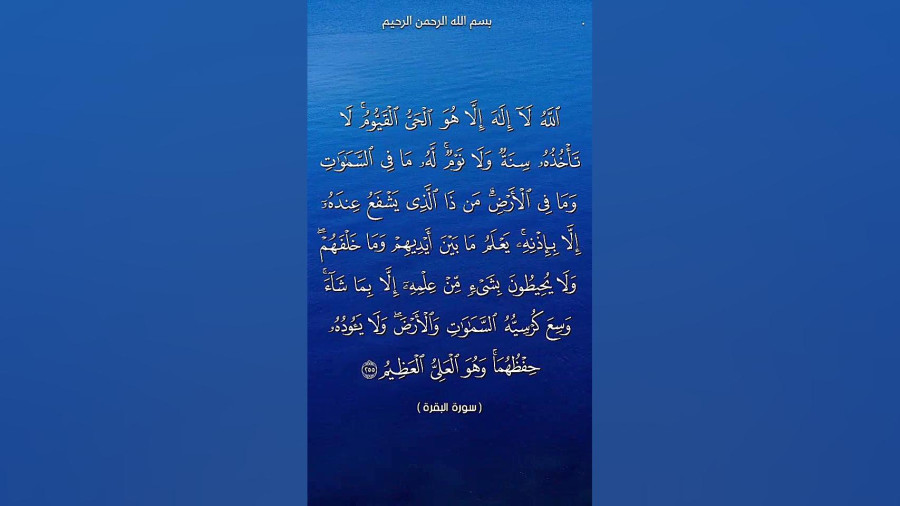 بسم الله الرحمن الرحيم
ٱللَّهُ لَآ إِلَٰهَ إِلَّا هُوَ ٱلْحَىُّ ٱلْقَيُّومُ ۚ لَا
تَأْخُذُهُۥ سِنَةٌ وَلَا نَوْمٌ ۚ لَّهُۥ مَا فِى ٱلسَّمَٰوَٰتِ
وَمَا فِى ٱلْأَرْضِ ۗ مَن ذَا ٱلَّذِى يَشْفَعُ عِندَهُۥٓ
إِلَّا بِإِذْنِهِۦ ۚ يَعْلَمُ مَا بَيْنَ أَيْدِيهِمْ وَمَا خَلْفَهُمْ ۖ
وَلَا يُحِيطُونَ بِشَىْءٍ مِّنْ عِلْمِهِۦٓ إِلَّا بِمَا شَآءَ ۚ
وَسِعَ كُرْسِيُّهُ ٱلسَّمَٰوَٰتِ وَٱلْأَرْضَ ۖ وَلَا يَـُٔودُهُۥ
حِفْظُهُمَا ۚ وَهُوَ ٱلْعَلِىُّ ٱلْعَظِيمُ ٢٥٥
( سورة البقرة )